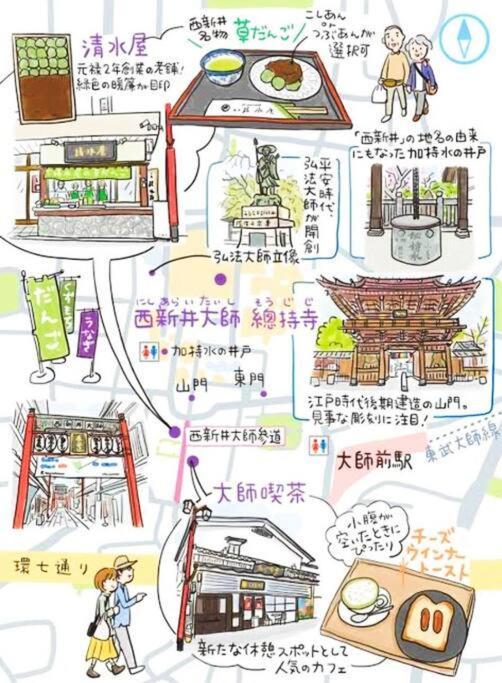 清水屋
元禄2年創業の老舗!
緑色の暖簾が目印
西新井
名物
草だんご
こしあん
or
つぶあんが
選択可
清水屋
「西新井」の地名の由来
にもなった加持水の井戸
平安時代
弘法大師が開創
加持水
弘法大師立像
にしあらいたいし そうじじ
西新井大師 總持寺
加持水の井戸
山門
東門
だんご
くずもち
うなぎ
江戸時代後期建造の山門。
見事な彫刻に注目!
西新井大師
西新井大師参道
大師前駅
東武大師線
大師喫茶
小腹が
空いたときに
ぴったり
チーズ
ウインナー
トースト
環七通り
新たな休憩スポットとして
人気のカフェ